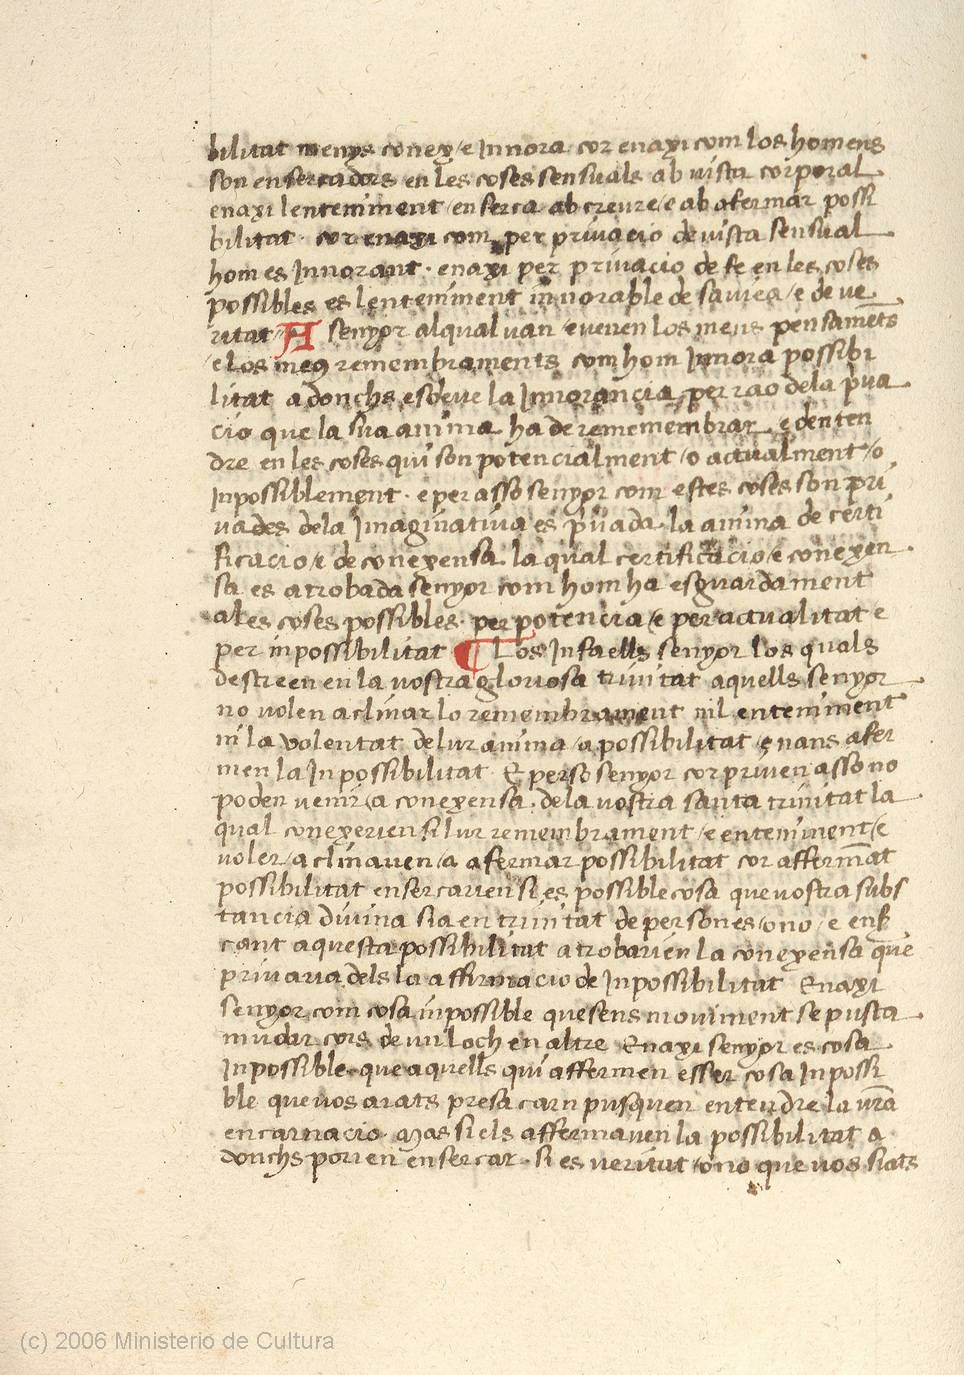 bilitat menys conex / e Innora cor enaxi com los homens
son ensercadors en les coses sensuals ab vista corporal
enaxi lenteniment / enserca ab creure / e ab afermar possi
bilitat · cor enaxi com per privacio de vista sensual
hom es Innorant · enaxi per privacio de fe en les coses
possibles es lenteniment innorable de saviea / e de ve
ritat / A senyor al qual van / e venen los meus pensamēts
/ e los meus remembraments com hom Innora possibi
litat adonchs esdeve la Innorancia per rao dela pͥua
cio que la sua anima ha de rememembrar e denten
dre en les coses qui son potencialment / o actualment / o
Inpossiblement · e per asso senyor com estes coses son pri
vades dela Imaginativa es pͥuada la anima de certi
ficacio / e de conexensa la qual certificacio / e conexen
sa es atrobada senyor com hom ha esguardament
ales coses possibles · per potencia / e per actualitat e
per inpossibilitat ¶ Los Infaells senyor los quals
descreen en la vostra gloriosa trinitat aquells senyor
no volen aclinar lo remembrament nil enteniment
ni la volentat de lur anima / a possibilitat / enans afer
men la Inpossibilitat E perso senyor cor priven asso no
poden venir / a conexensa dela vostra santa trinitat la
qual conexerien si lur remembrament / e enteniment / e
voler / aclinaven / a afermar possibilitat cor affermāt
possibilitat ensercarien si es possible cosa que vostra subs
tancia divina sia en trinitat de persones / o no / e enser
cant aquesta possibilitat atrobarien la conexensa que
privaria dels la affirmacio de Inpossibilitat Enaxi
senyor com cosa inpossible que sens moviment se pusca
mudar cors de un loch en altre Enaxi senyor es cosa
Inpossible que aquells qui affermen esser cosa Inpossi
ble que vos aiats presa carn pusquen entendre la vr̄a
encarnacio · Mas si els affermaven la possibilitat a
donchs porien ensercar · si es veritat / o no que vos siats
(c) 2006 Ministerio de Cultura